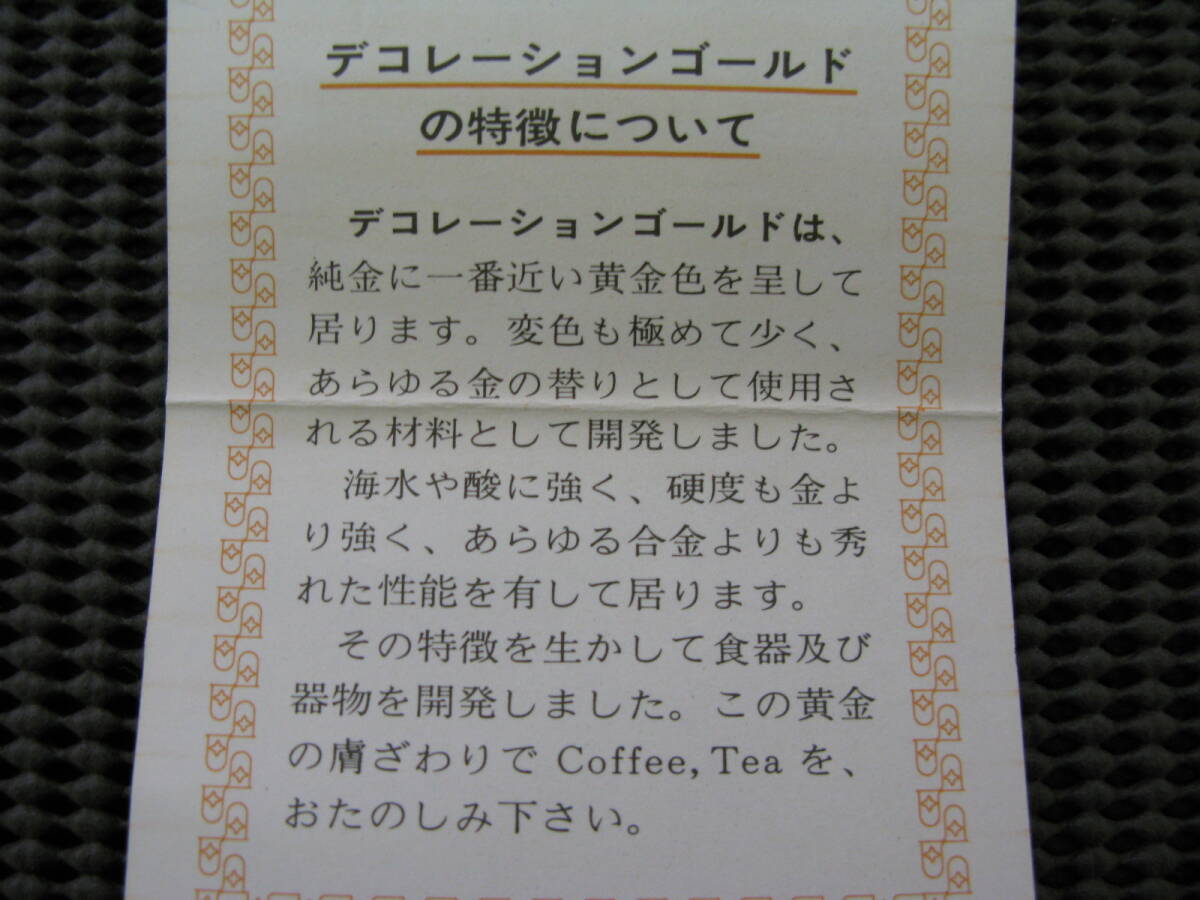 デコレーションゴールド
の特徴について
デコレーションゴールドは、
純金に一番近い黄金色を呈して
居ります。変色も極めて少く、
あらゆる金の替りとして使用さ
れる材料として開発しました。
海水や酸に強く、硬度も金よ
り強く、あらゆる合金よりも秀
れた性能を有して居ります。
その特徴を生かして食器及び
器物を開発しました。この黄金
の膚ざわりで Coffee, Tea を、
おたのしみ下さい。